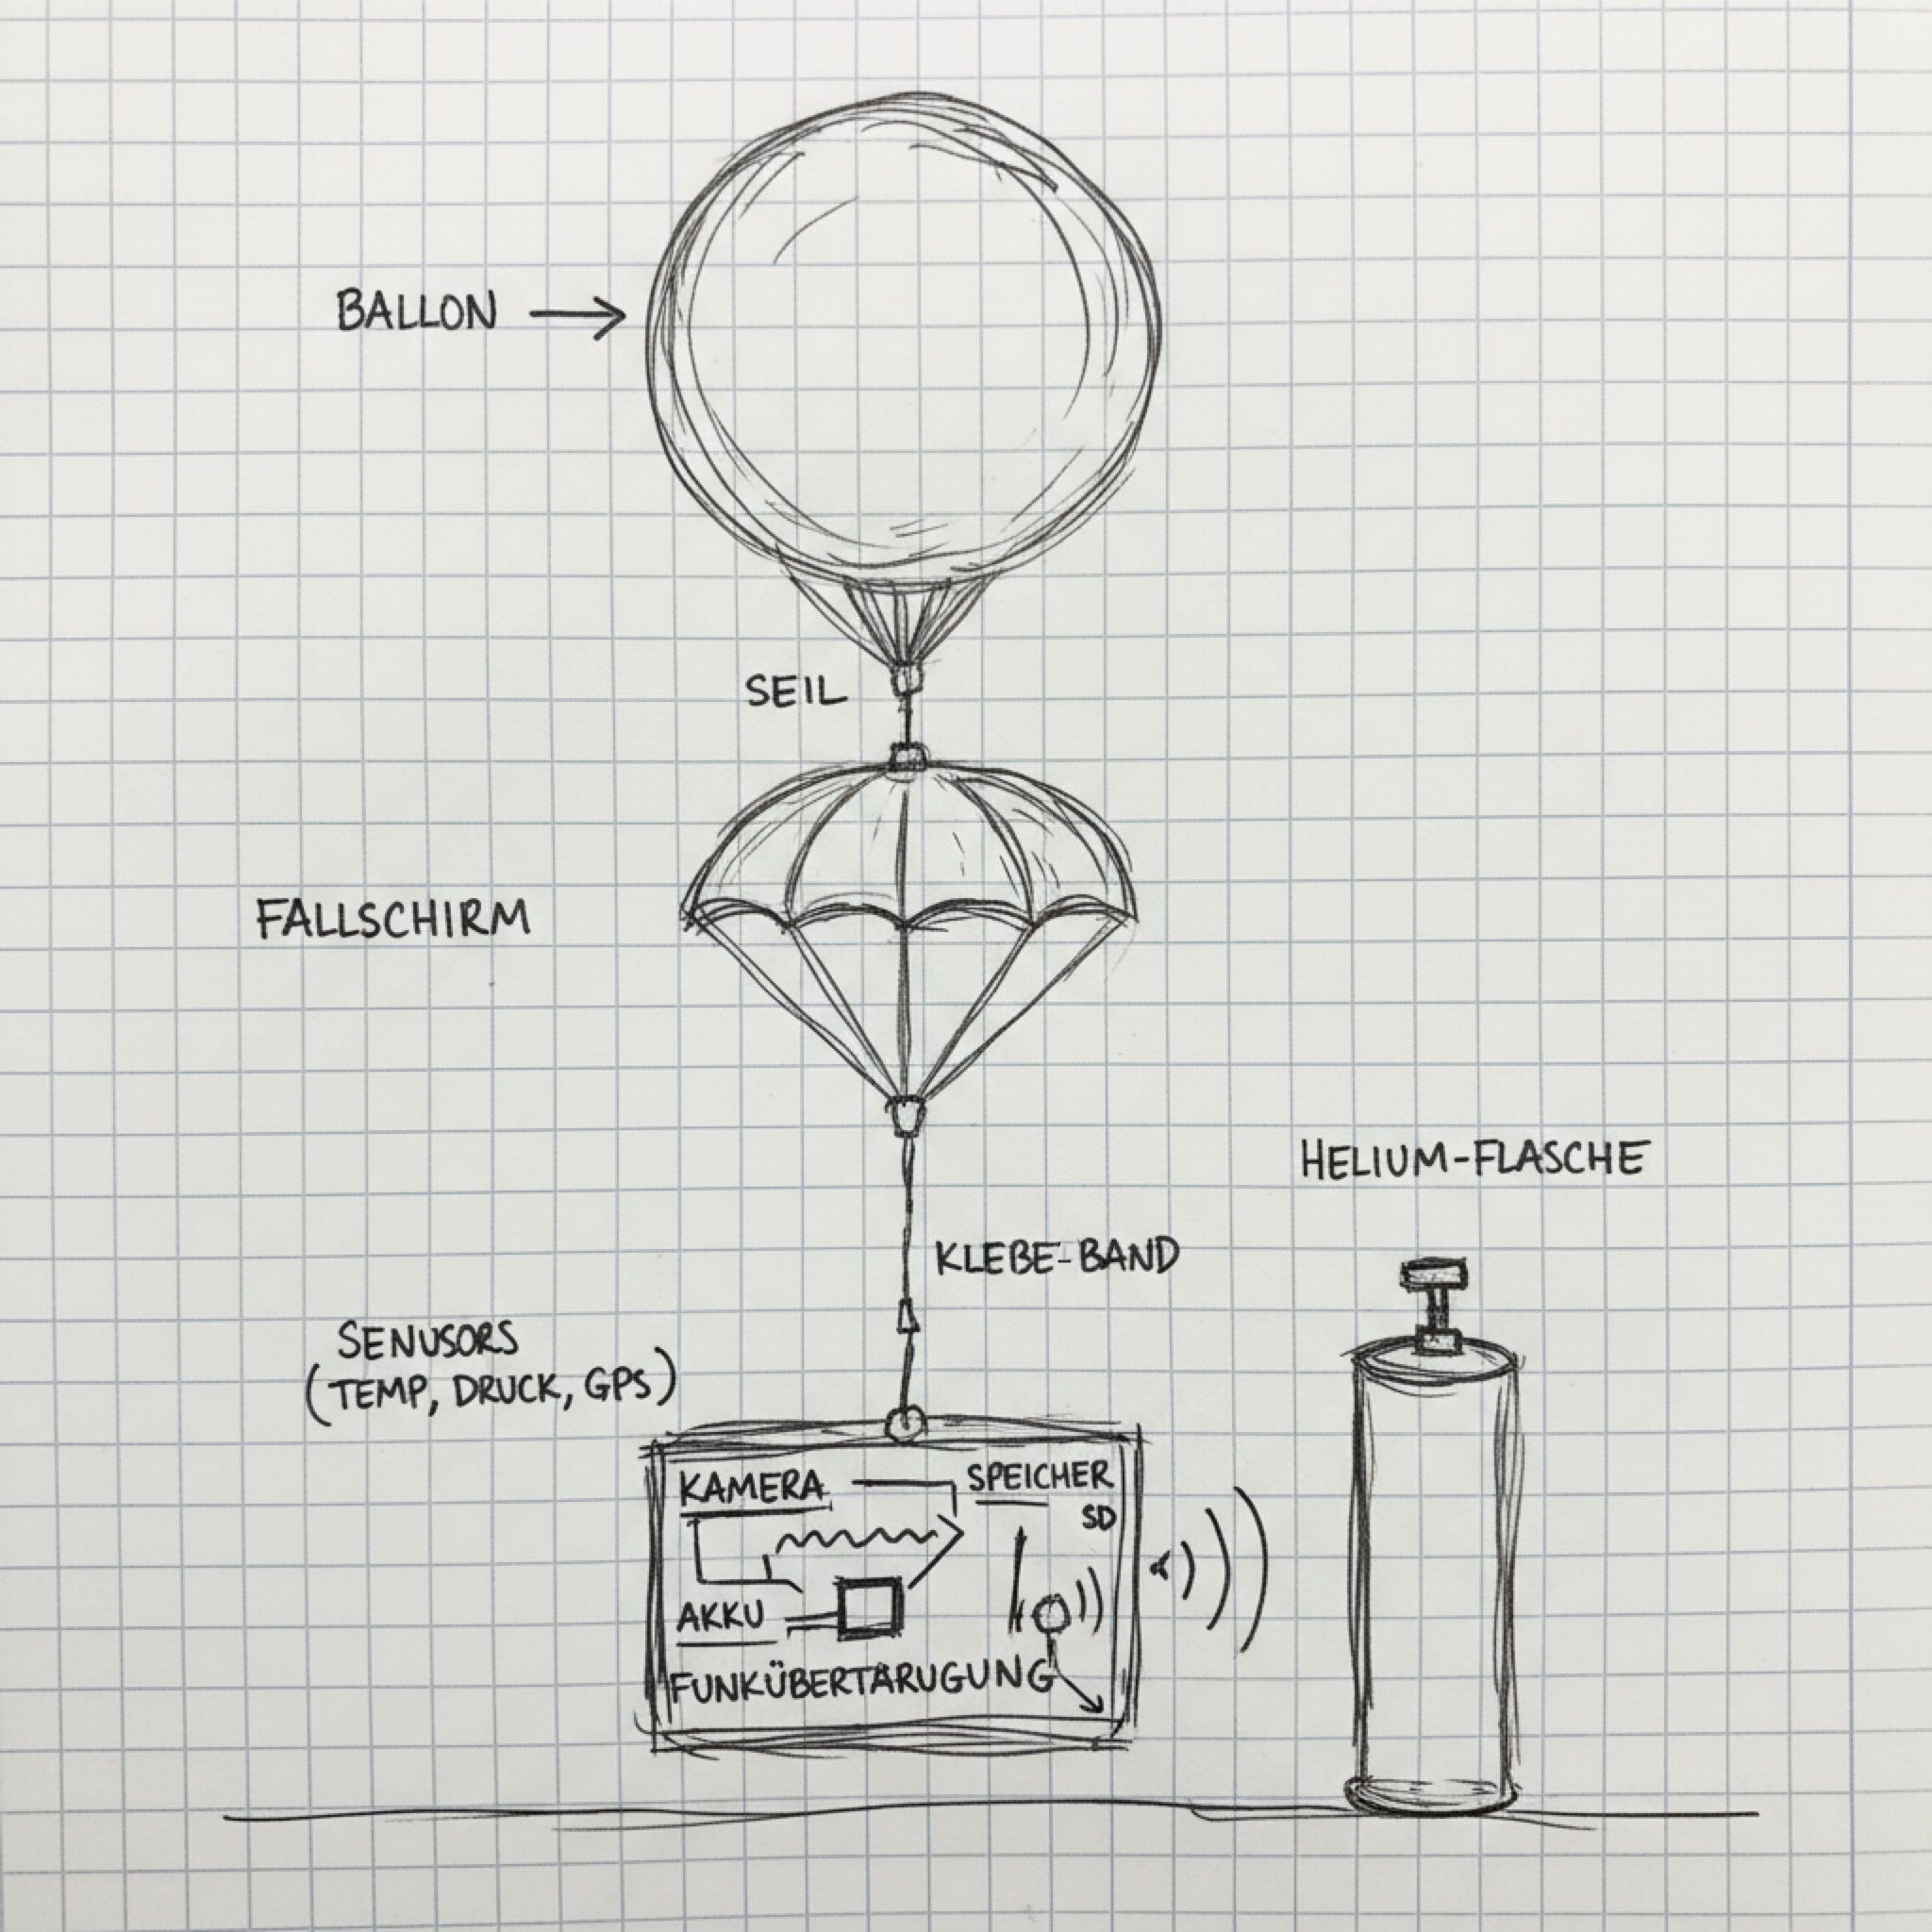 BALLON
SEIL
FALLSCHIRM
HELIUM-FLASCHE
KLEBE-BAND
SENUSORS
(TEMP, DRUCK, GPS)
KAMERA
SPEICHER
SD
AKKU
FUNKÜBERTARUGUNG